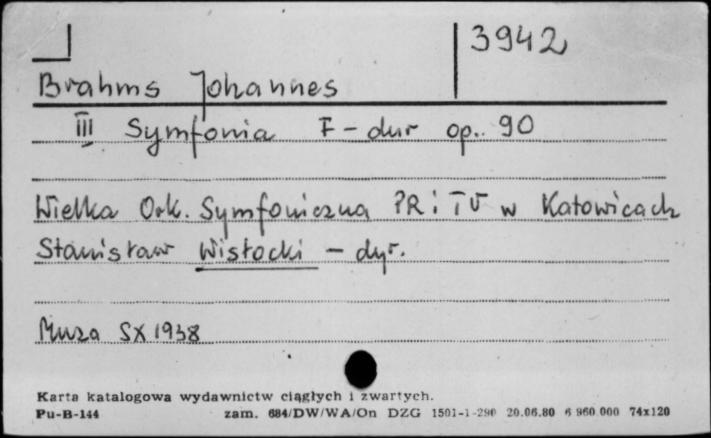 3942
Brahms Johannes
III Symfonia F-dur op. 90
Wielka Ork. Symfoniczna PR i TV w Katowicach
Stanisław Wisłocki - dyr.
Muza SX 1938
Karta katalogowa wydawnictw ciągłych i zwartych.
Pu-B-144 zam. 684/DW/WA/On DZG 1501-1-290 20.06.80 6 960 000 74x120